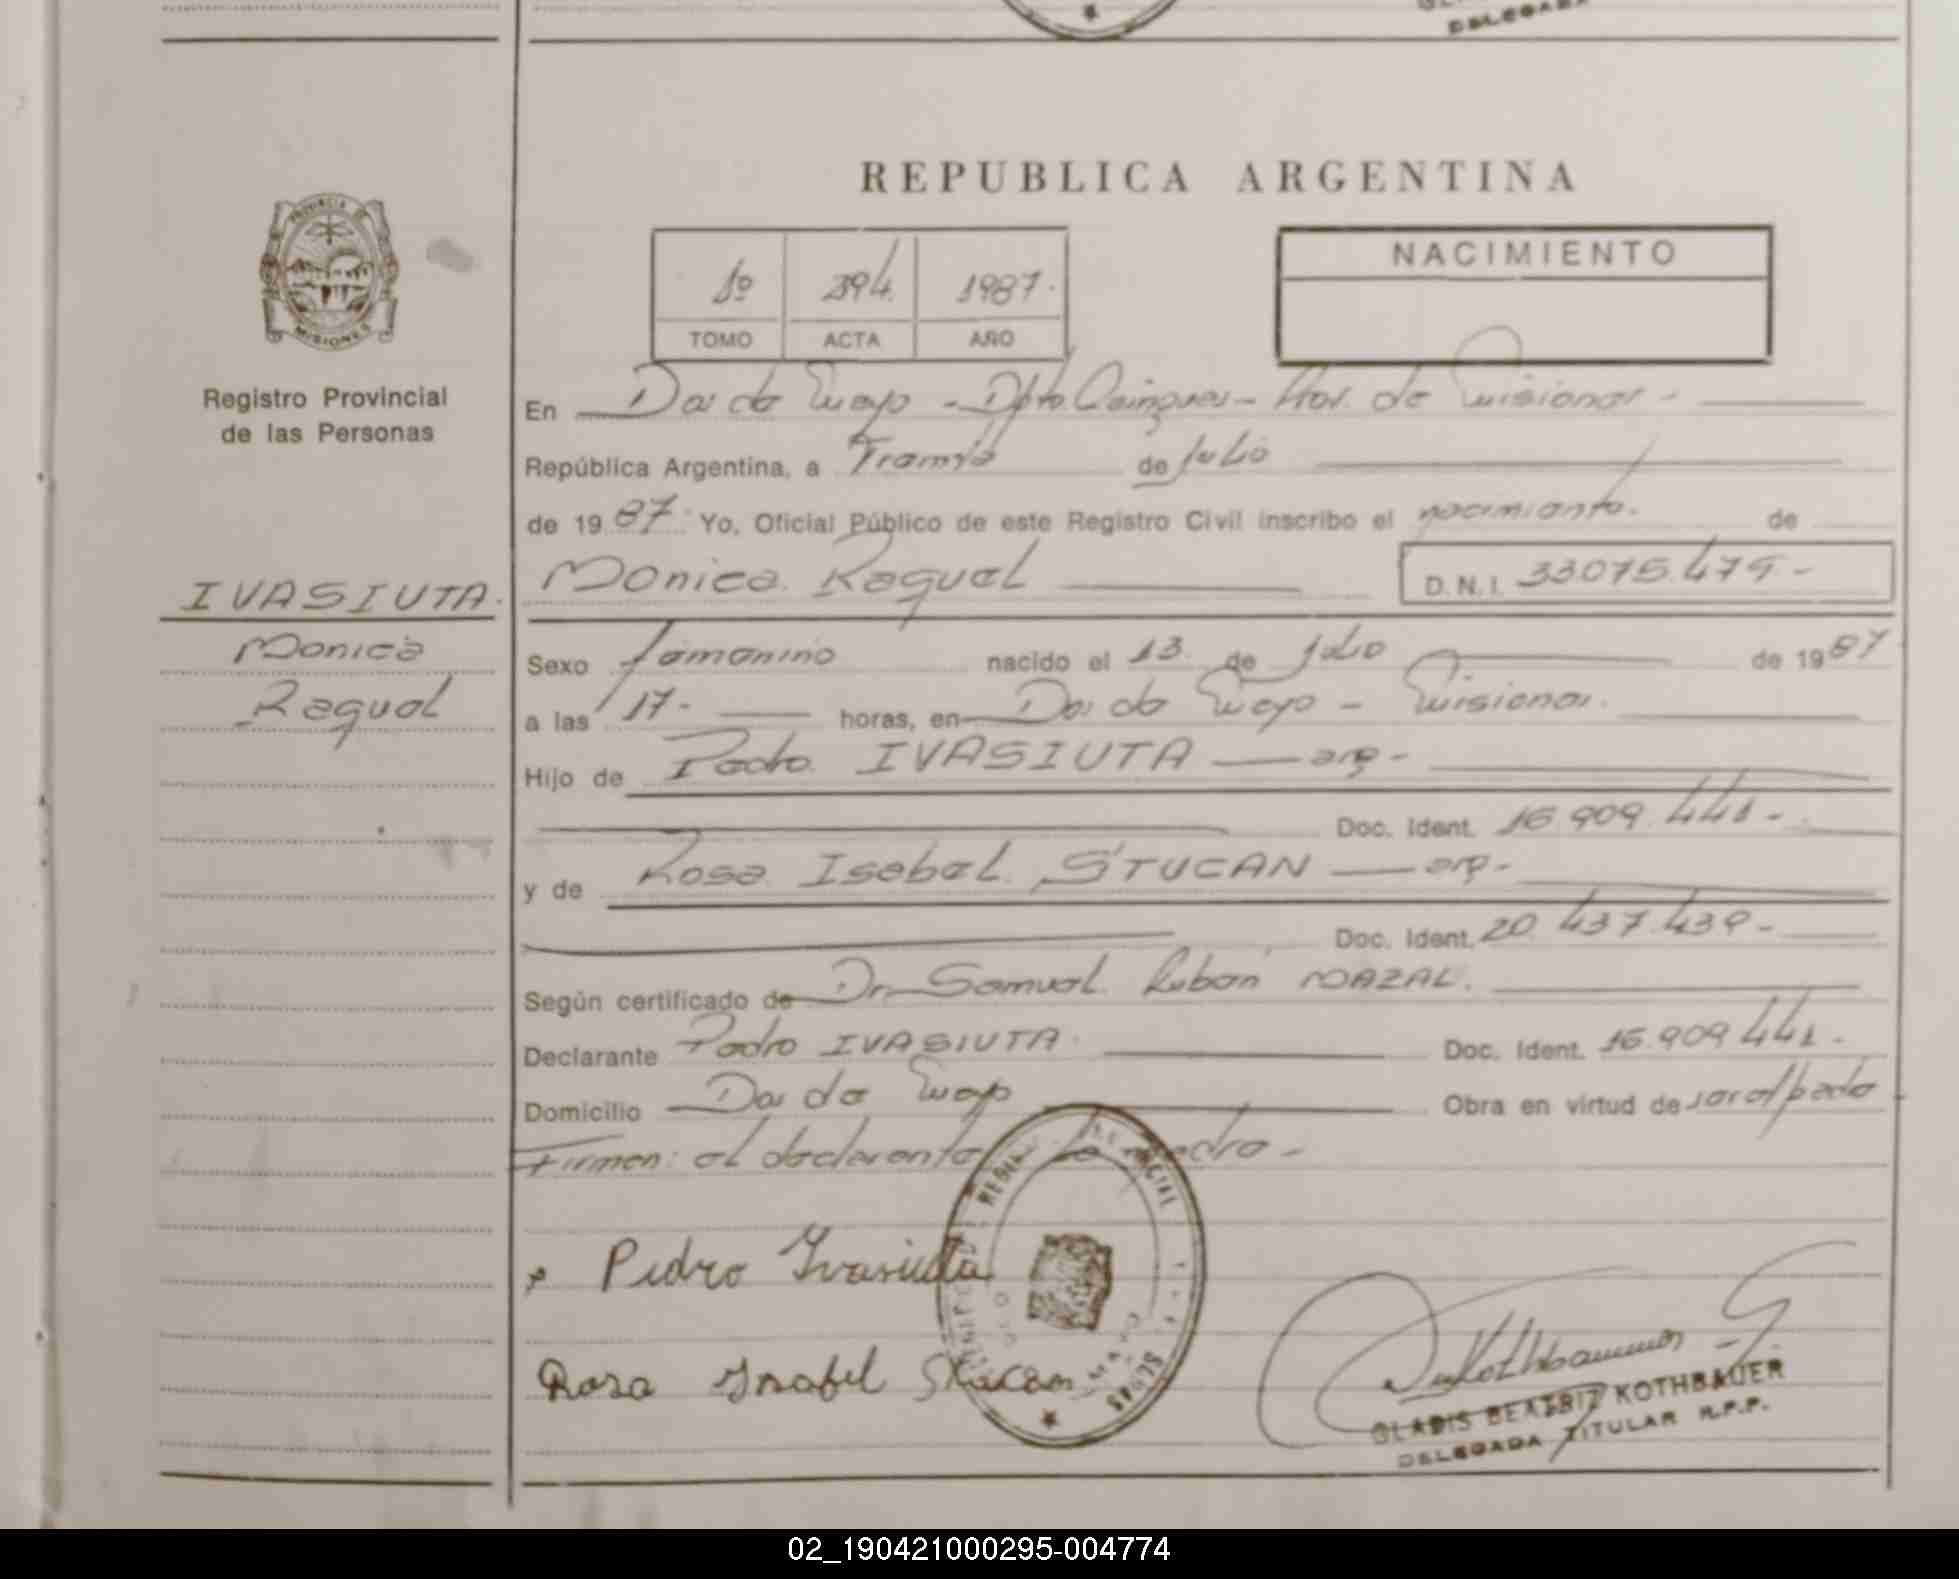 DELEGADA
REPUBLICA ARGENTINA
PROVINCIA DE
MISIONES
1º 394 1987.
TOMO ACTA AÑO
NACIMIENTO
Registro Provincial
de las Personas
En Dos de Mayo - Dpto. Cainguas - Prov. de Misiones -
República Argentina, a Treinta de Julio
de 1987. Yo, Oficial Público de este Registro Civil inscribo el nacimiento. de
IVASIUTA.
Monica Raquel D.N.I. 33.075.479-
Monica
Raquel
Sexo femenino nacido el 13. de julio de 1987
a las 17- horas, en Dos de Mayo - Misiones.
Hijo de Pedro IVASIUTA arg-
Doc. Ident. 16.909.441-
y de Rosa Isabel STUCAN arg-
Doc. Ident. 20.437.439-
Según certificado de Dr. Samuel Ruben MAZAL.
Declarante Pedro IVASIUTA. Doc. Ident. 16.909.441.
Domicilio Dos de Mayo Obra en virtud de ser el padre
Firman: el declarante La madre-
Pedro Ivasiuta
Rosa Ysabel Stucan
GLADIS BEATRIZ KOTHBAUER
DELEGADA TITULAR R.P.P.
02_190421000295-004774